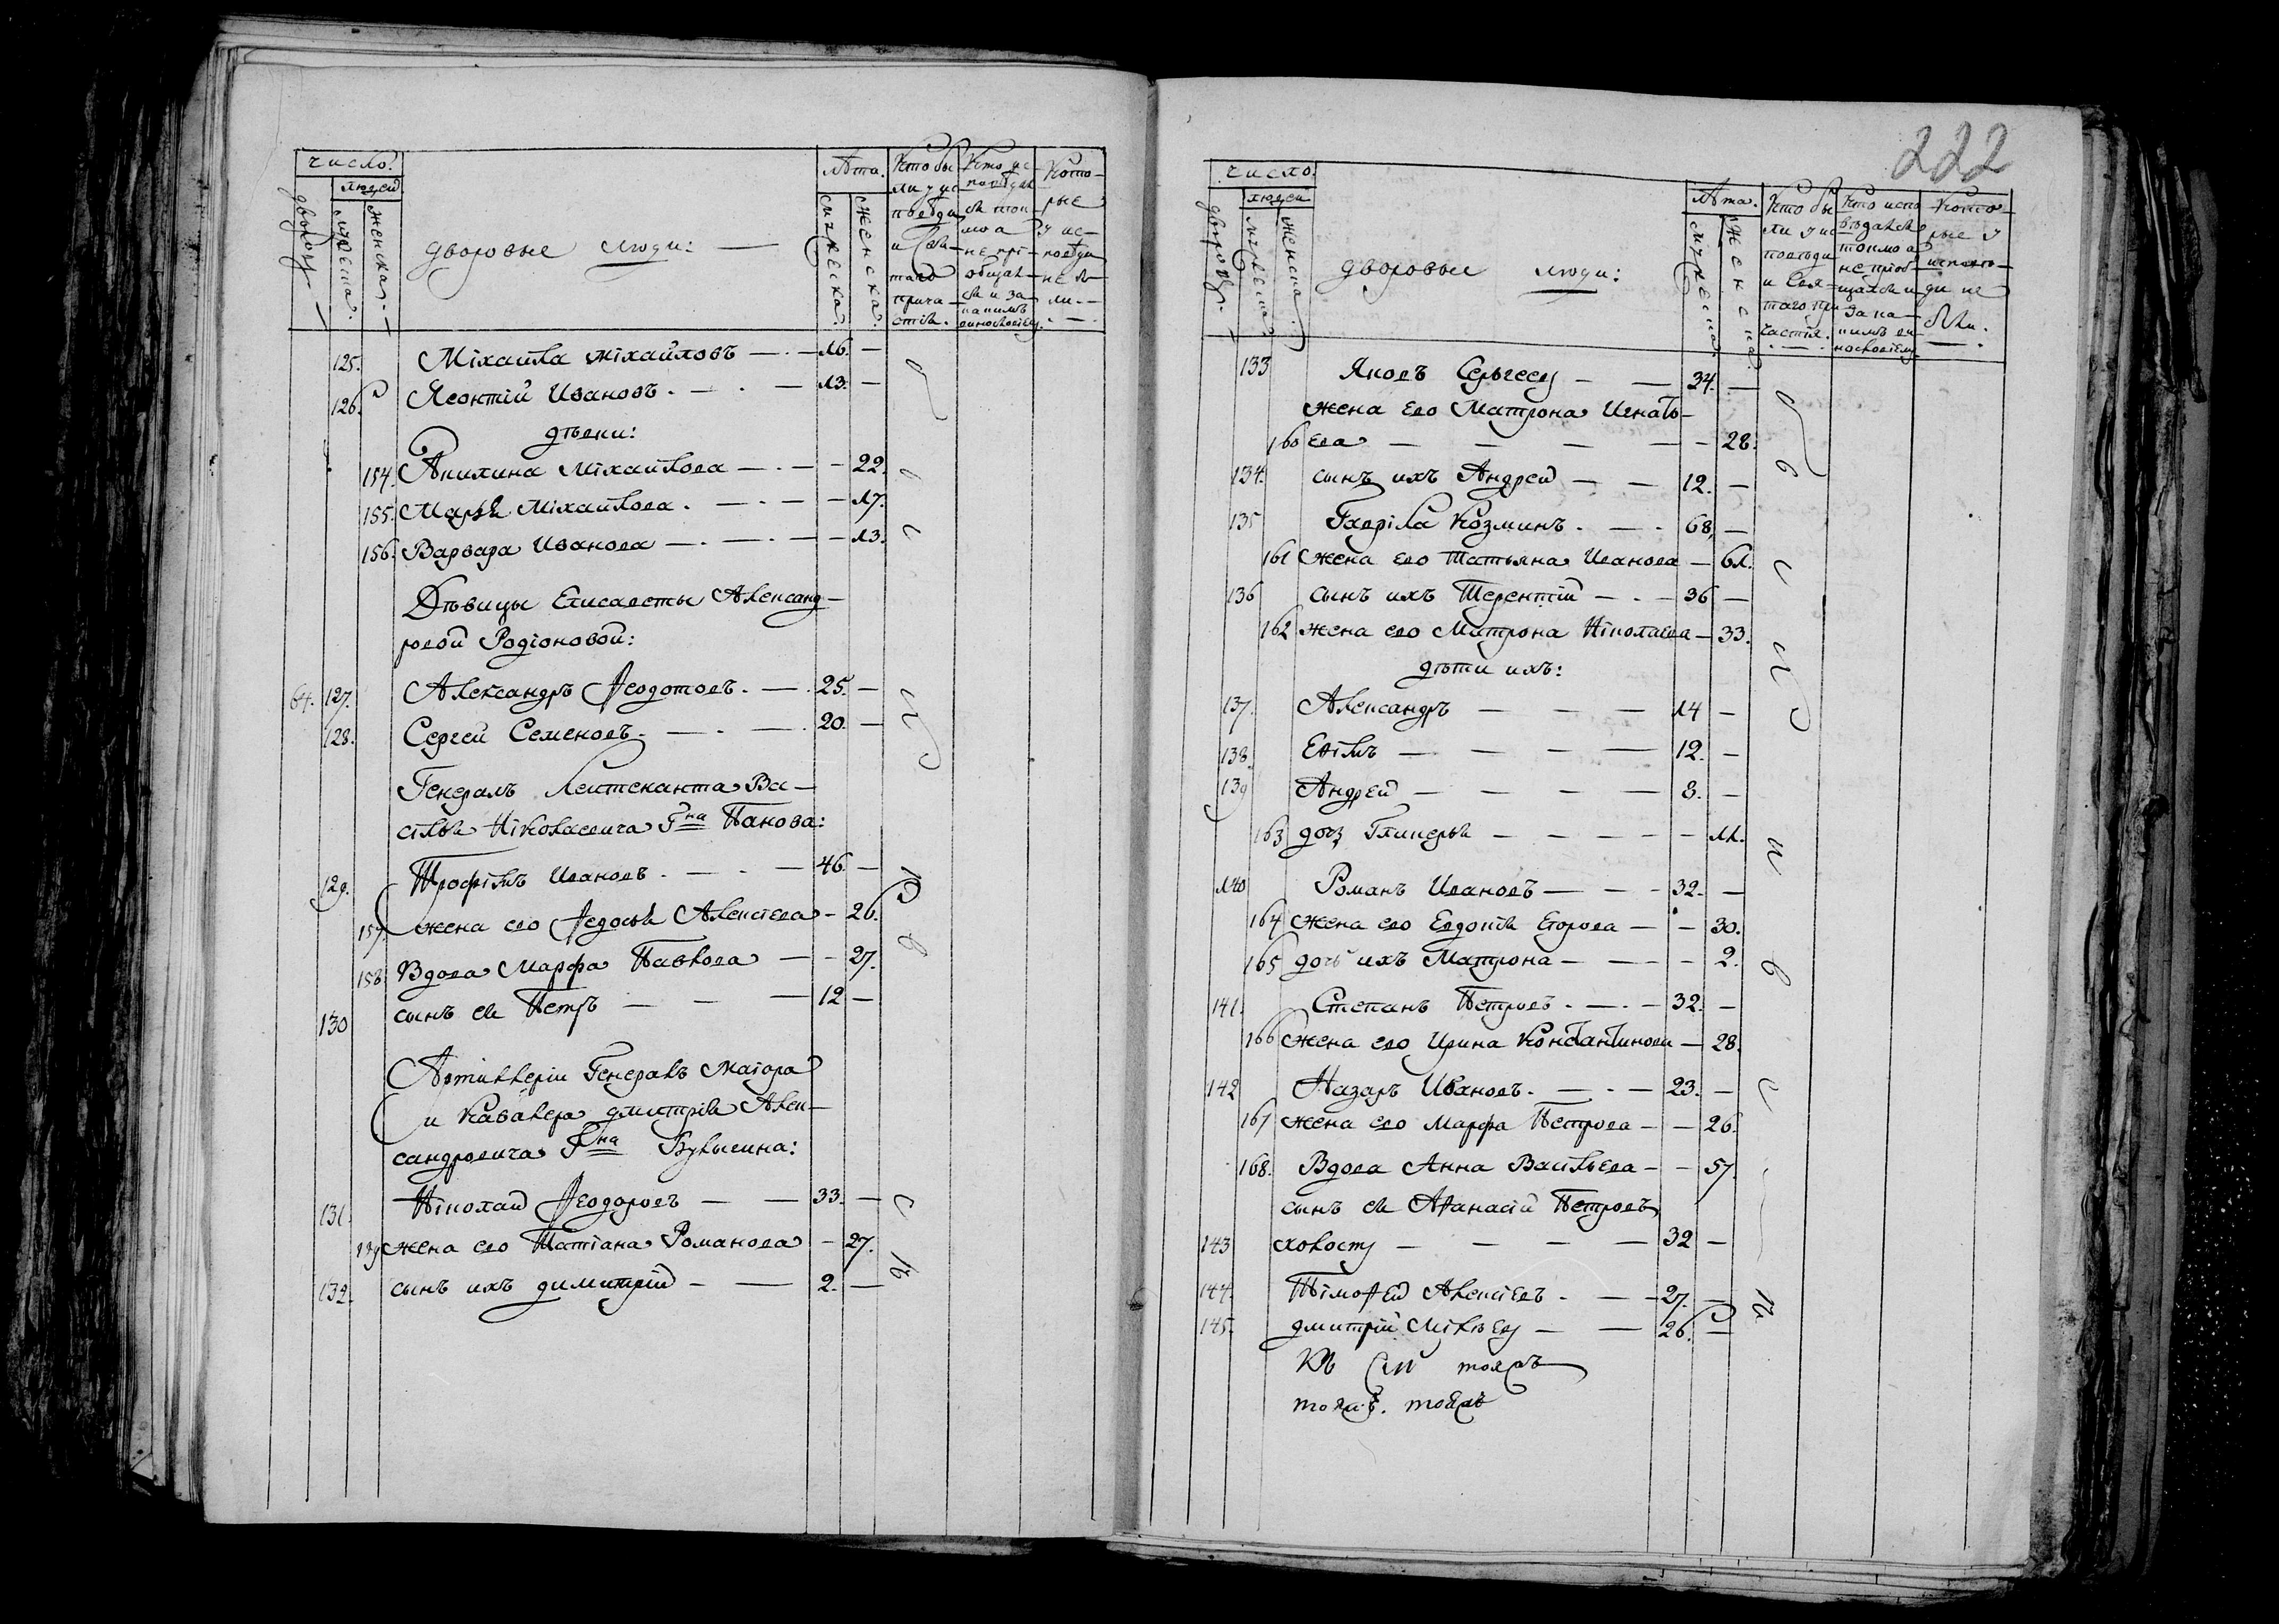 число.
людей
дворовъ
мужеска.
женска.
дворовые люди:
лѣта.
мужеска.
женска.
Кто бы
ли у ис
повѣди
и Свя
таго
прича
стія.
Кто ис
повѣдал
ся ток
мо а
не прі
общал
ся и за
какимъ
винословіемъ.
Кото
рые
у ис
повѣди
не бы
ли.
125. Міхаила міхайловъ — 16. —
126. Леонтій Ивановъ. — 13. —
дѣвки:
154. Акилина Міхайлова — 22.
155. Марья Міхайлова. — 17.
156. Варвара Иванова — 13.
Дѣвицы Елисаветы Александ
ровой Родіоновой:
64. 127. Александръ Ѳеодотовъ. — 25. —
128. Сергей Семеновъ. — 20. —
Генералъ Леитенанта Ва
сілья Ніколаевича Гна Панова:
129. Трофімъ Ивановъ. — 46. —
157. жена его Ѳедосья Алексіева — 26.
158. Вдова Марфа Павлова — 27.
130 сынъ ея Петръ — 12 —
Артиллеріи Генералъ Маіора
и Кавалера дмитрія Алек
сандровича Гна Булыгина:
131. Ніколай Ѳеодоровъ — 33. —
159 жена его Татіана Романова — 27.
132. сынъ ихъ димитрій — 2. —
222
число.
людей
дворовъ
мужеска.
женска.
дворовые люди:
лѣта.
мужеска
женска
Кто бы
ли у ис
повѣди
и Свя
таго при
частія.
Кто испо
вѣдался
токмо а
не приоб
щался и
за ка
кимъ ви
нословіемъ
Кото
рые у
исповѣ
ди не
были.
133 Яковъ Сергеевъ — 34. —
жена его Матрона Игнать
160 ева — 28.
134. сынъ ихъ Андрей — 12. —
135 Гавріла Козминъ. — 68, —
161 жена его Татьяна Иванова — 61.
136 сынъ ихъ Терентій — 36 —
162 жена его Матрона Ніколаева — 33.
дѣти ихъ:
137. Александръ — 14 —
138. Еѳімъ — 12. —
139 Андрей — 8. —
163 дочь Гликерья — 11.
140 Романъ Ивановъ — 32. —
164 жена его Евдокія Егорова — 30.
165 дочь ихъ Матрона — 2.
141. Степанъ Петровъ. — 32. —
166 жена его Ирина Константинова — 28.
142 Назаръ Ивановъ. — 23. —
167 жена его Марфа Петрова — 26.
168. Вдова Анна Васильева — 57.
сынъ ея Аѳанасій Петровъ
143 холостъ — 32 —
144. Тімоѳей Алексіевъ. — 27. —
145. дмитрій — 26. —